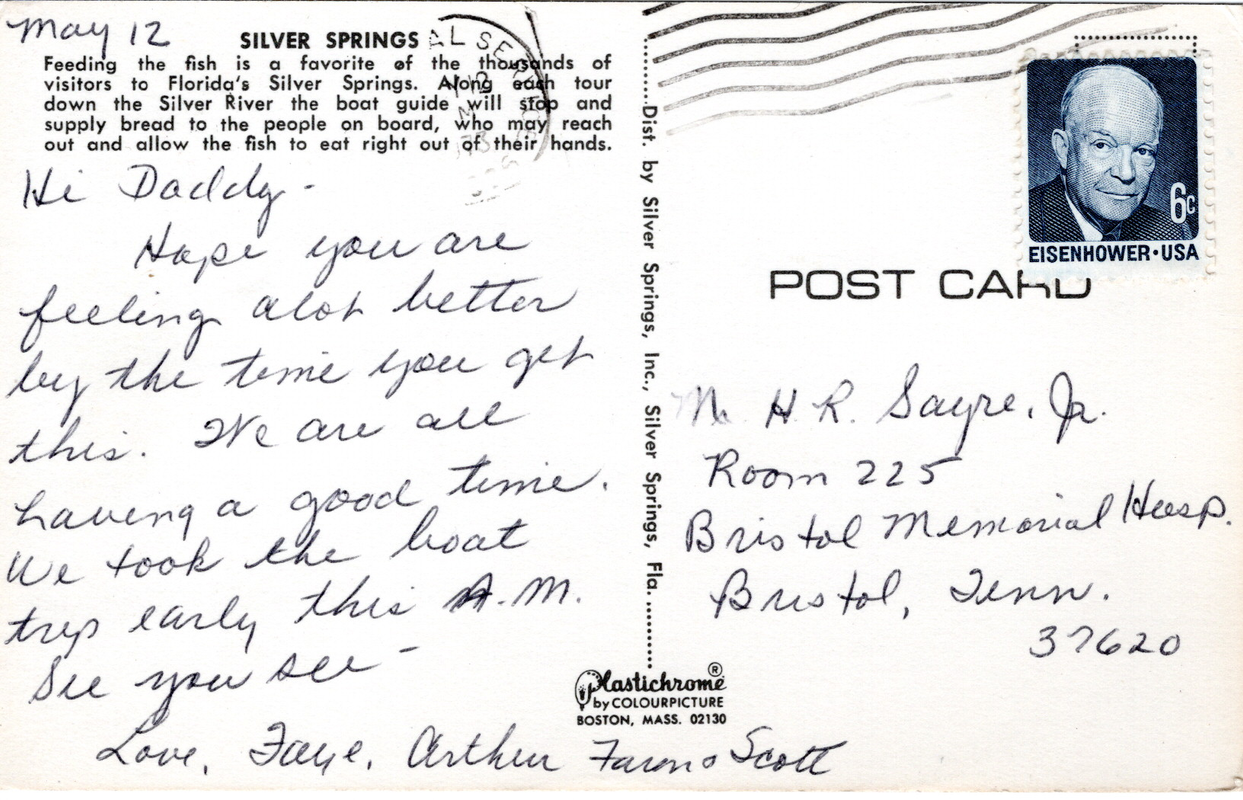 May 12
SILVER SPRINGS
Feeding the fish is a favorite of the thousands of
visitors to Florida's Silver Springs. Along each tour
down the Silver River the boat guide will stop and
supply bread to the people on board, who may reach
out and allow the fish to eat right out of their hands.
Hi Daddy-
Hope you are
feeling alot better
by the time you get
this. We are all
having a good time.
We took the boat
trip early this A.M.
See you see -
Love, Faye, Arthur Scott
Dist. by Silver Springs, Inc., Silver Springs, Fla.
Plastichrome ®
by COLOURPICTURE
BOSTON, MASS. 02130
6c
EISENHOWER · USA
POST CARD
Mr. H. R. Sayre, Jr.
Room 225
Bristol Memorial Hosp.
Bristol, Tenn.
37620